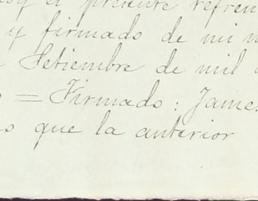 el presente refren
y firmado de mi m
Setiembre de mil
= Firmado: James
que la anterior